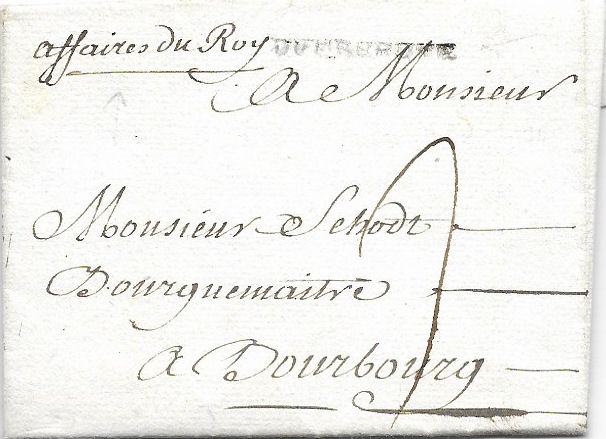 affaires du Roy
A Monsieur
Monsieur Schodt
Bourguemaitre
a Bourbourg